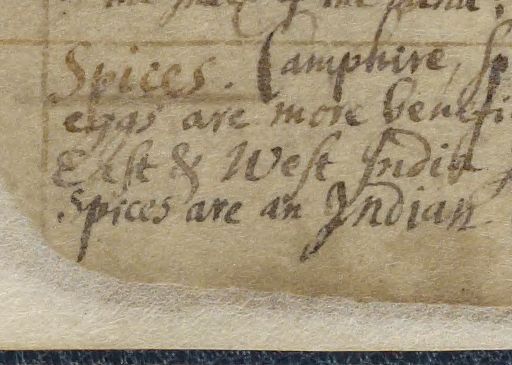 of the
Spices. Camphire, sp
eggs are more benefi
East & West India
Spices are an Indian